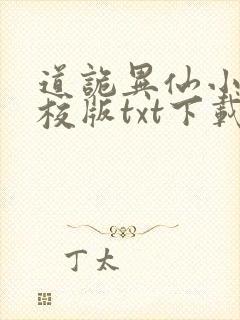 道詭異仙小
校版txt下載
丁太